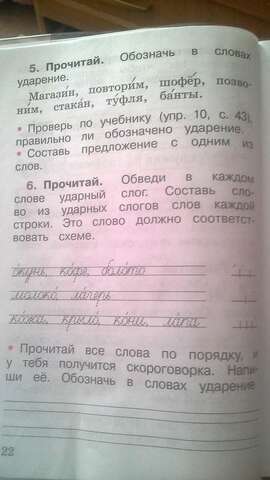 5. Прочитай. Обозначь в словах
ударение.
Магази́н, повтори́м, шофёр, позво-
ни́м, стака́н, ту́фля, ба́нты.
• Проверь по учебнику (упр. 10, с. 43),
правильно ли обозначено ударение.
• Составь предложение с одним из
слов.
6. Прочитай. Обведи в каждом
слове ударный слог. Составь сло-
во из ударных слогов слов каждой
строки. Это слово должно соответст-
вовать схеме.
о́кунь, ко́фе, боло́то
молоко́, ла́герь
ко́жа, крыло́, ко́ни, ла́па
• Прочитай все слова по порядку, и
у тебя получится скороговорка. Напи-
ши её. Обозначь в словах ударение
22